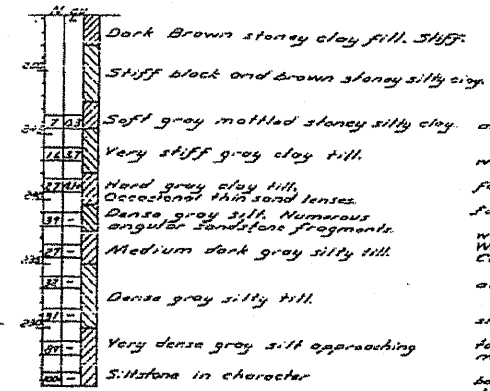 N
Dark Brown stoney clay fill. Stiff.
Stiff black and brown stoney silty clay.
7 0.3 Soft gray mottled stoney silty clay.
16 3.7 Very stiff gray clay till.
27 Hard gray clay till,
Occasional thin sand lenses.
39 - Dense gray silt. Numerous
angular sandstone fragments.
27 - Medium dark gray silty till.
235
32 -
Dense gray silty till.
31 -
230
89 - Very dense gray silt approaching
100+ - Siltstone in character